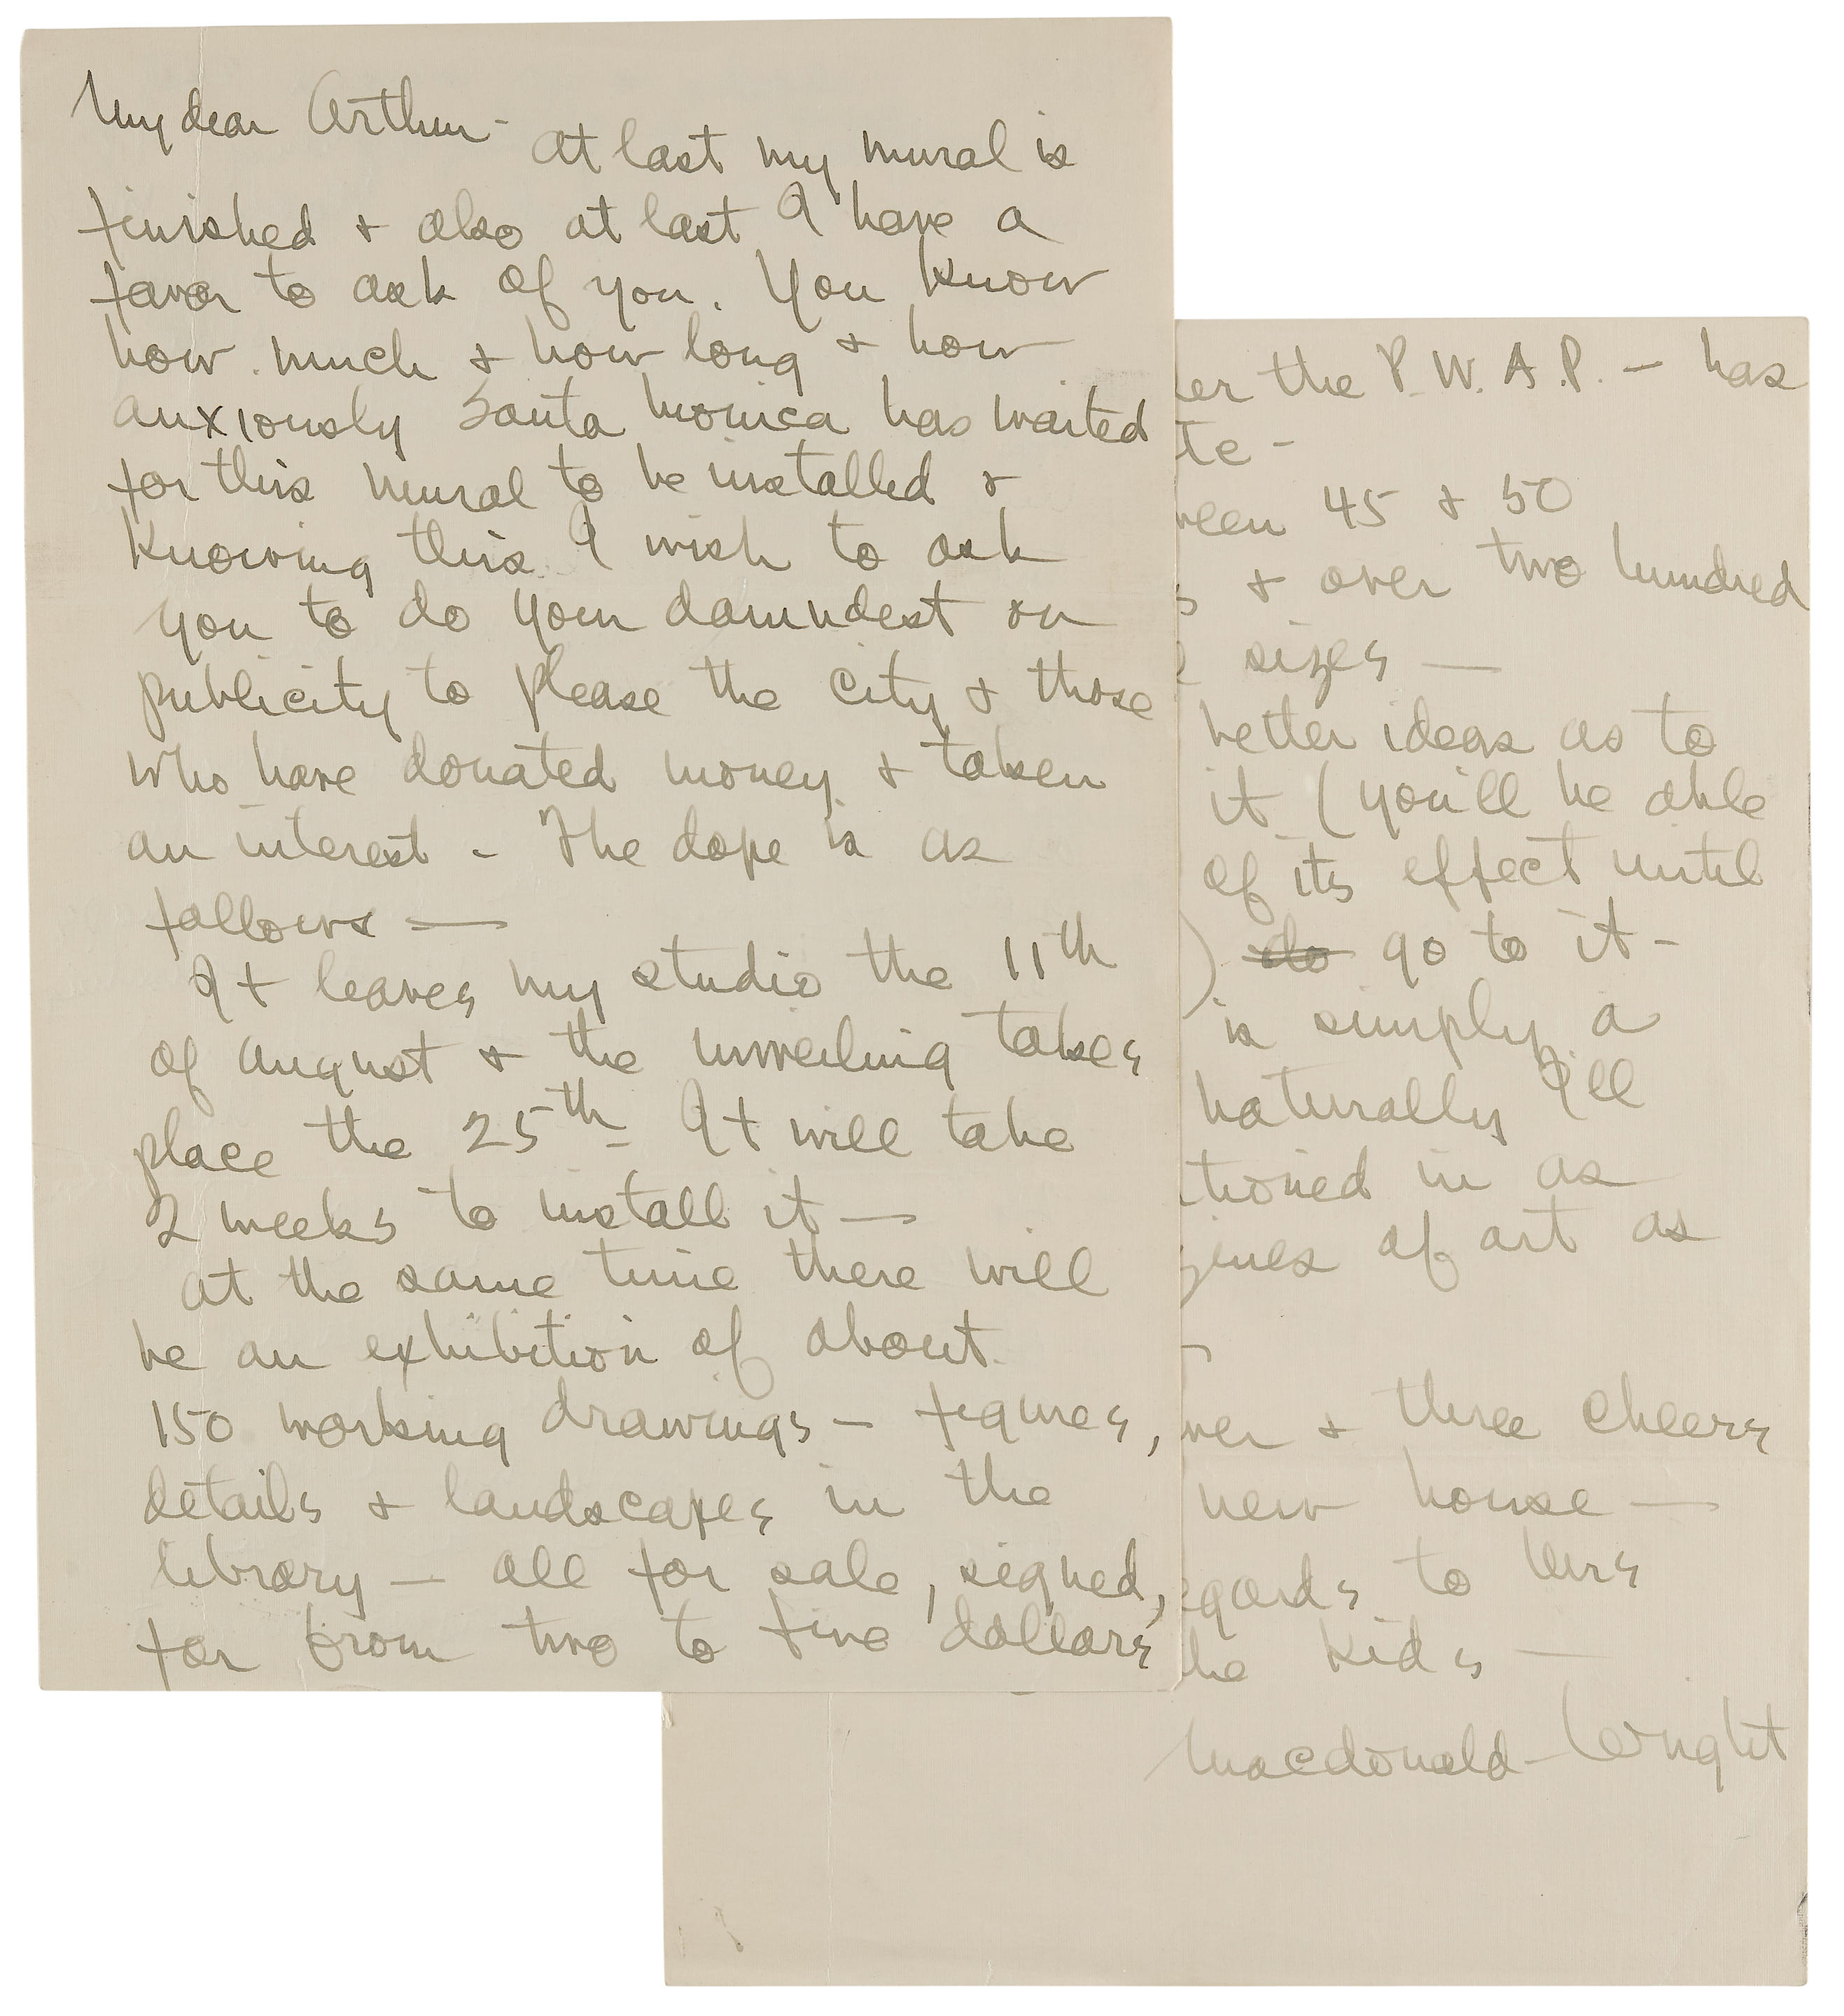 My dear Arthur-
At last my mural is
finished + also at last I have a
favor to ask of you. You know
how much + how long + how
anxiously Santa Monica has waited
for this mural to be installed +
knowing this I wish to ask
you to do your damndest on
publicity to please the city + those
who have donated money + taken
an interest - The dope is as
follows —
It leaves my studio the 11th
of August + the unveiling takes
place the 25th - It will take
2 weeks to install it —
At the same time there will
be an exhibition of about
150 working drawings — figures,
details + landscapes in the
library — all for sale, signed,
for from two to five dollars
er the P.W.A.P. — has
te -
ween 45 + 50
s + over two hundred
sizes —
better ideas as to
it (you'll be able
of its effect until
) do go to it -
is simply a
naturally I'll
tioned in as
zines of art as
ver + three cheers
new house —
egards to Mrs
he kids —
Macdonald-Wright